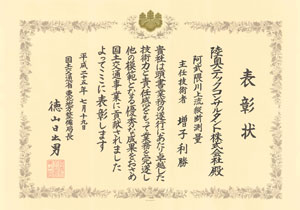 表彰状
陸奥テックコンサルタント株式会社殿
阿武隈川上流縦断測量
主任技術者 増子利勝
貴社は頭書業務の遂行にあたり卓越した
技術力と責任感をもって業務を完遂し
他の模範となる優秀な成果をおさめ
国土交通事業に貢献されました
よってここに表彰します
平成二十五年七月十九日
国土交通省東北地方整備局長
徳山日出男